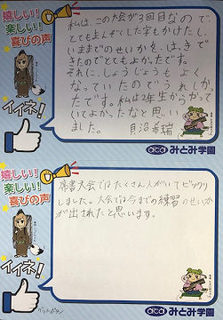 嬉しい!!
楽しい!!
喜びの声
イイネ!
私は、この大会が3回目なので、
とても主んぞくした字もかけたし
いままでのせいかを、はっきで
きたのでとてもよかったです。
それに、しょうじょうもよく
なっていたのでうれしかっ
たです。私は2年生からかっ
ていてよかったなと思い
ました。
みとみ学園
嬉しい!!
楽しい!!
喜びの声
イイネ!
席書大会ではたくさん人がいてビックリ
しました。大会では今までの練習のせいか
が出されたと思います。
みとみ学園